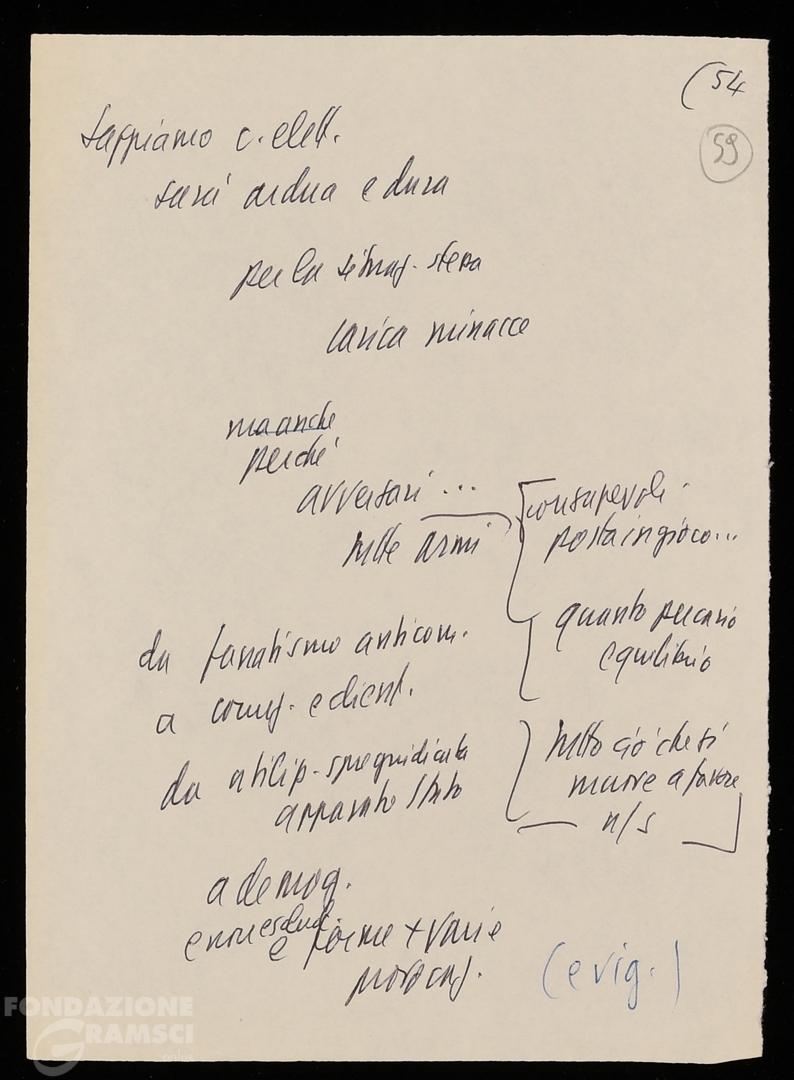 (54
59
Sappiamo c. elett.
sarà ardua e dura
per la situaz. stessa
carica minacce
ma anche
perché
avversari ...
tutte armi
consapevoli
posta in gioco...
quanto precario
equilibrio
da fanatismo anticom.
a corruz. e client.
da utiliz. spregiudicata
apparato Stato
tutto ciò che si
muove a favore
n/s
a demog.
e non esclud.
e forme + varie
provocaz.
(e vig.)
FONDAZIONE
GRAMSCI
onlus